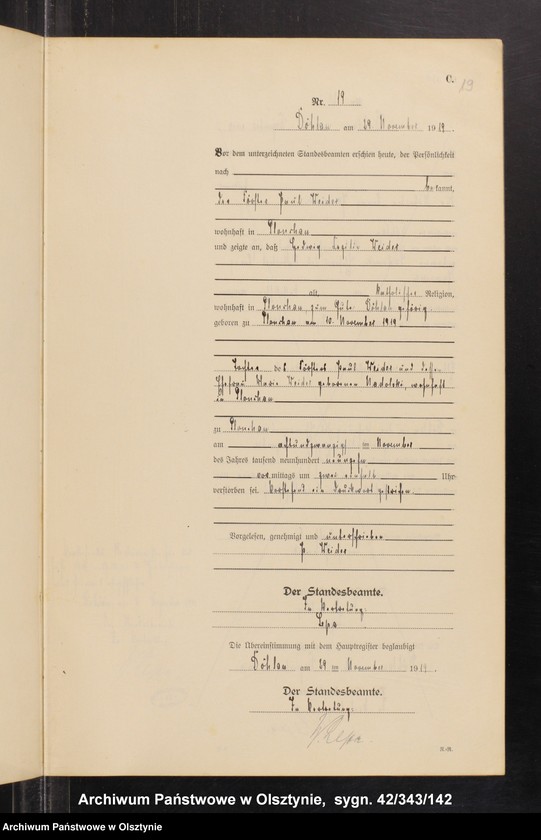 C.
19
Nr. 19
Döhlau am 29 November 1919.
Vor dem unterzeichneten Standesbeamten erschien heute, der Persönlichkeit
nach
bekannt,
der Förster Paul Weider
wohnhaft in Plonchau
und zeigte an, daß Hedwig Cezilie Weider
alt, katholischer Religion,
wohnhaft in Plonchau zum Gute Döhlau gehörig
geboren zu Plonchau am 10. November 1919
Tochter des Försters Paul Weider und dessen
Ehefrau Marie Weider geborenen Nadolski, wohnhaft
in Plonchau
zu Plonchau
am achtundzwanzigsten November
des Jahres tausend neunhundert neunzehn
vormittags um zwei einhalb Uhr
verstorben sei. Vorstehend ein Druckwort gestrichen.
Vorgelesen, genehmigt und unterschrieben
P. Weider
Der Standesbeamte.
In Vertretung:
Lepa
Die Übereinstimmung mit dem Hauptregister beglaubigt
Döhlau am 29 ten November 1919.
Der Standesbeamte.
In Vertretung:
Archiwum Państwowe w Olsztynie, sygn. 42/343/142
Archiwum Państwowe w Olsztynie